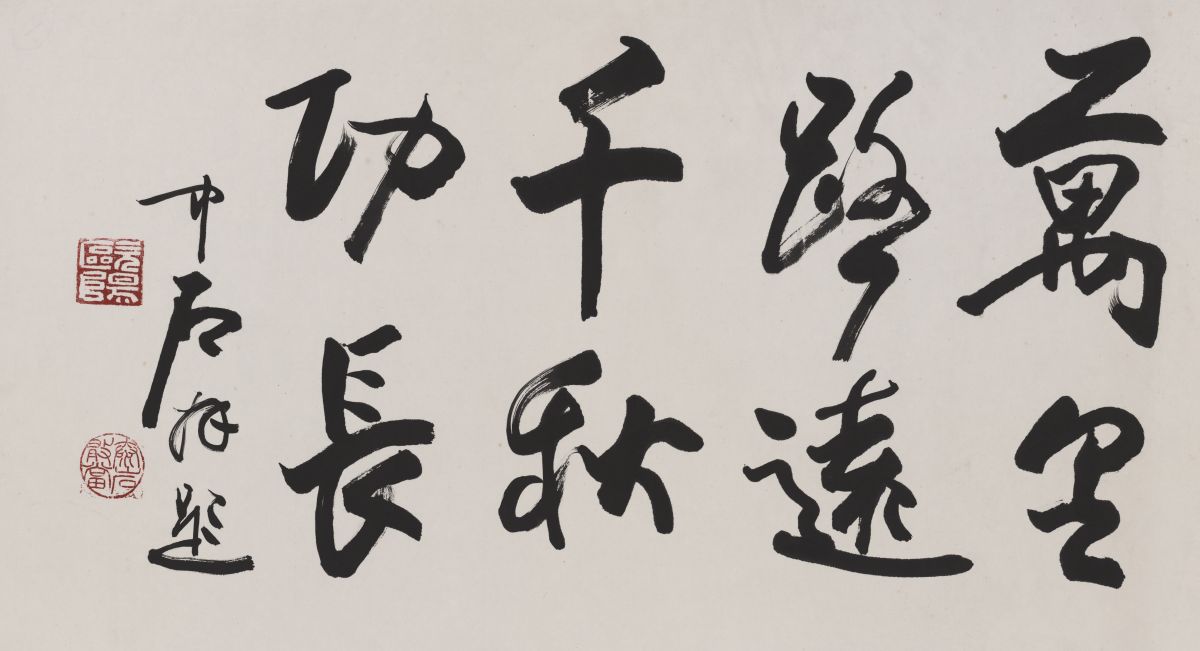 萬里
路遠
千秋
功長
中石題